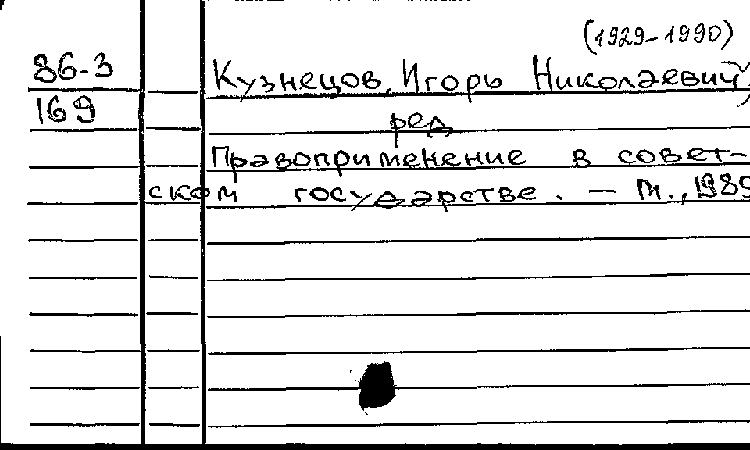 (1929-1990)
86-3 Кузнецов, Игорь Николаевич,
169 ред
Правоприменение в совет-
ском государстве. — М., 1985